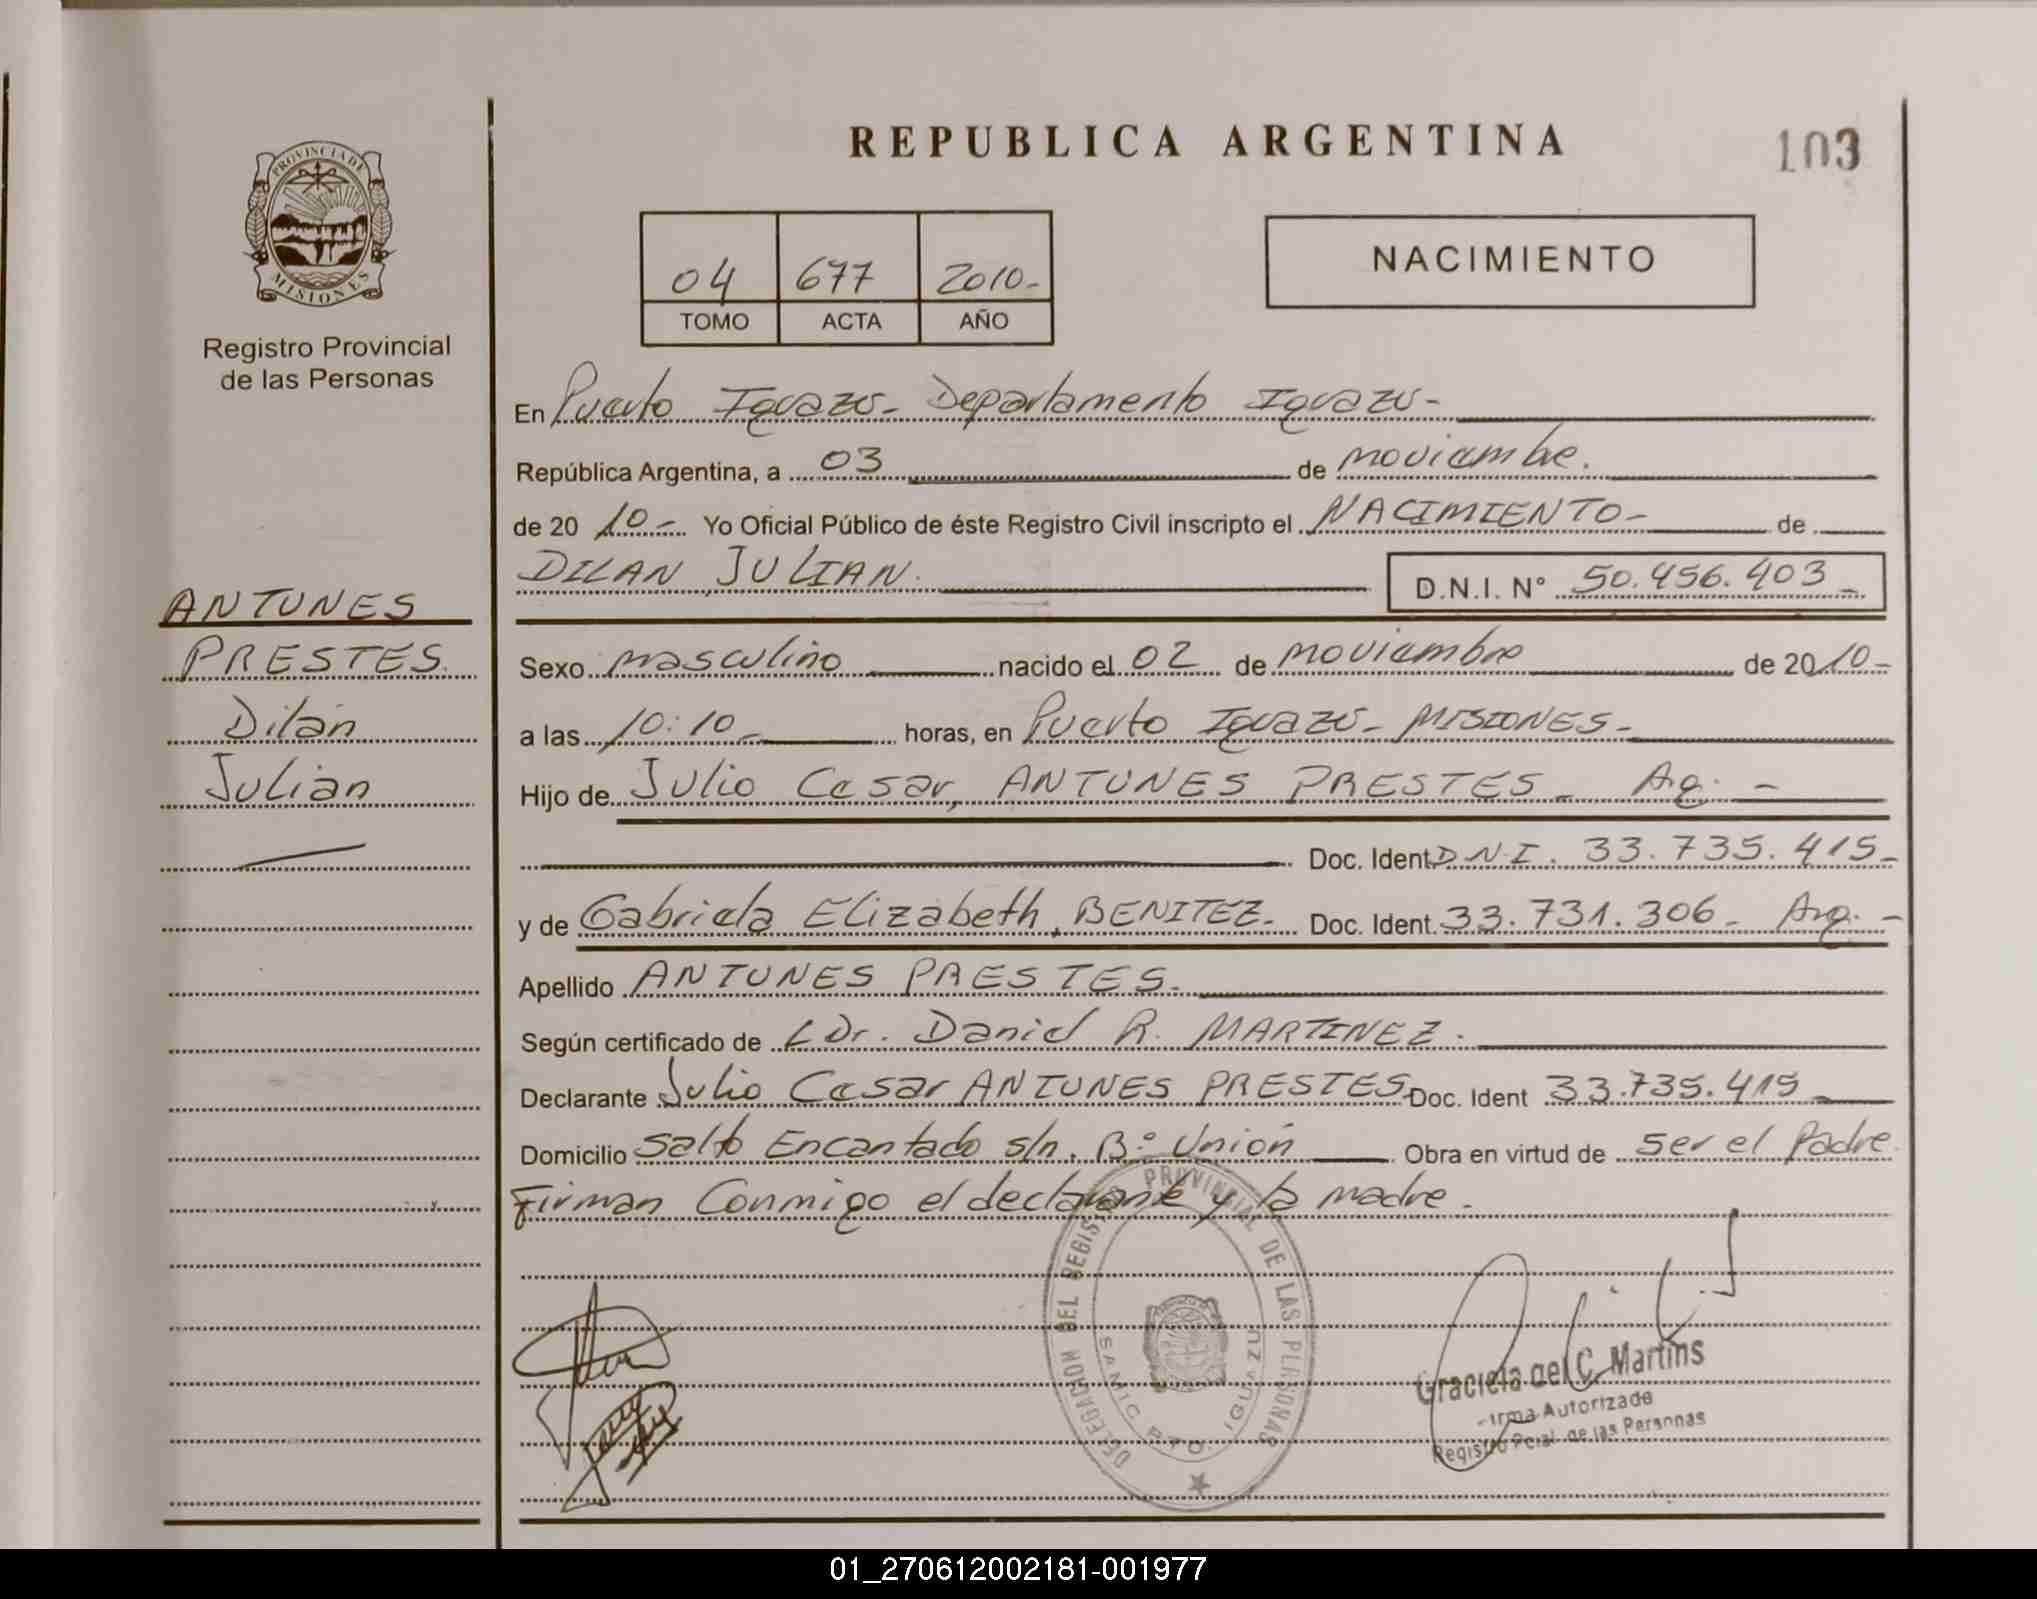 REPUBLICA ARGENTINA
103
PROVINCIA DE
MISIONES
Registro Provincial
de las Personas
04 677 2010-
TOMO ACTA AÑO
NACIMIENTO
En Puerto Iguazú- Departamento Iguazú-
República Argentina, a 03 de noviembre.
de 20 10- Yo Oficial Público de éste Registro Civil inscripto el NACIMIENTO- de
DILAN JULIAN. D.N.I. N° 50.456.403-
ANTUNES
PRESTES.
Dilan
Julian
Sexo masculino nacido el 02 de noviembre de 2010-
a las 10:10- horas, en Puerto Iguazú- MISIONES-
Hijo de Julio Cesar, ANTUNES PRESTES- Ag. -
Doc. Ident D.N.I. 33.735.415-
y de Gabriela Elizabeth, BENITEZ- Doc. Ident. 33.731.306- Arg. -
Apellido ANTUNES PRESTES.
Según certificado de Dr. Daniel R. MARTINEZ.
Declarante Julio Cesar ANTUNES PRESTES Doc. Ident 33.735.415
Domicilio Salto Encantado s/n. B° Unión Obra en virtud de ser el Padre
Firman Conmigo el declarante y la madre.
DELEGACION DEL REGISTRO PROVINCIAL DE LAS PERSONAS
SAMIC PTO. IGUAZU
Graciela del C. Martins
Firma Autorizada
Registro Pcial. de las Personas
01_270612002181-001977